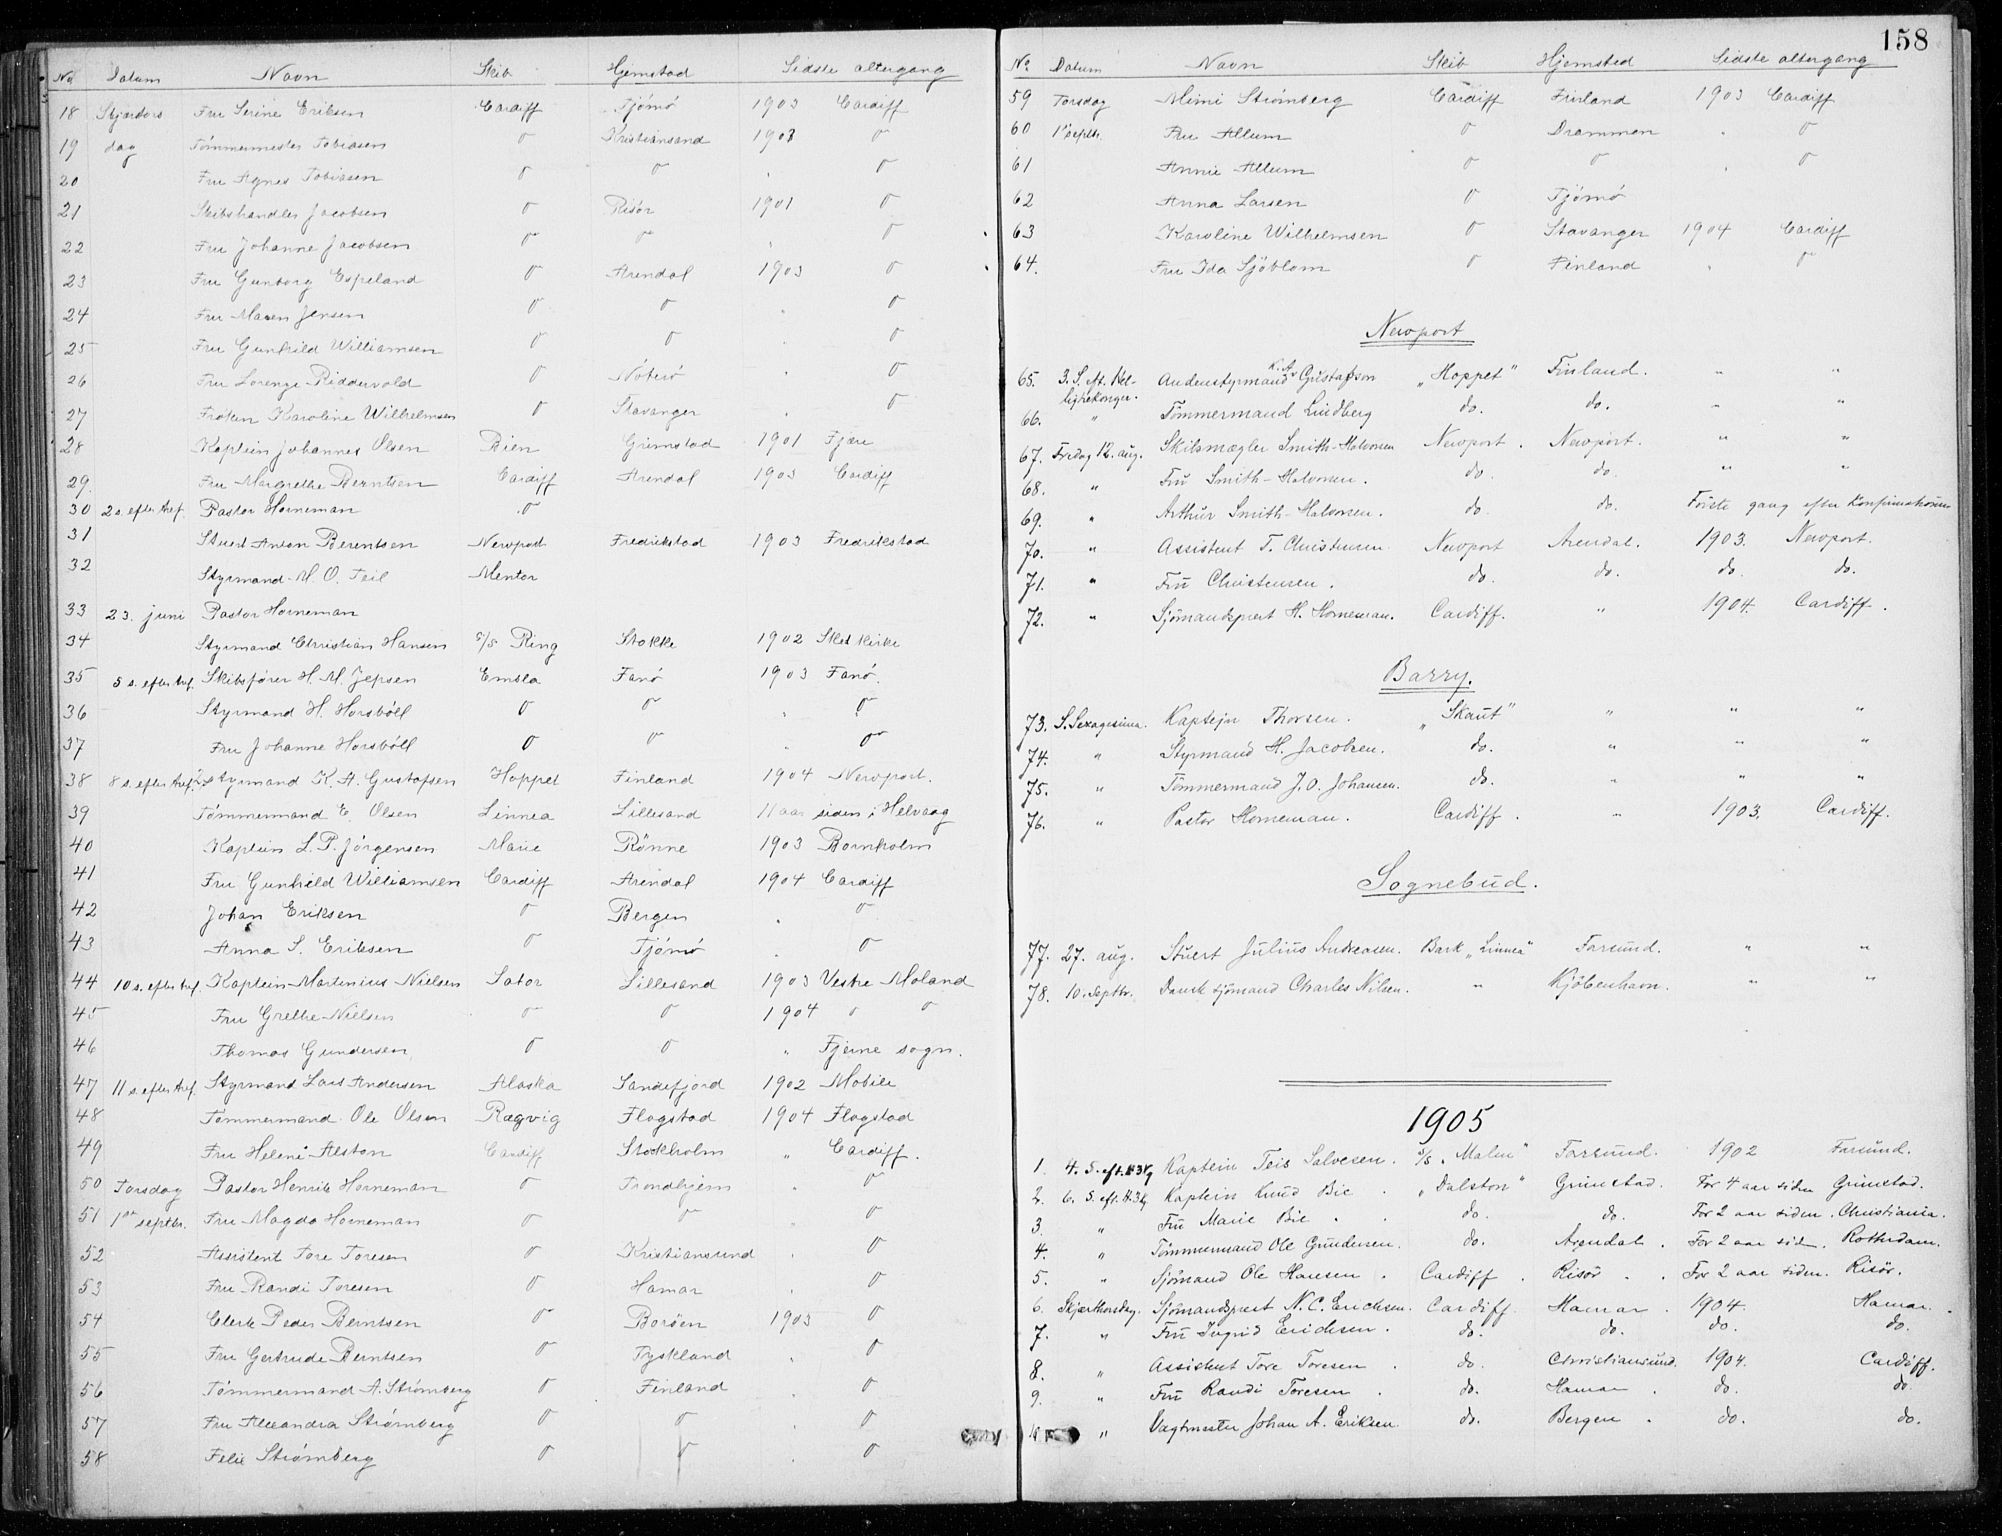 No Datum Navn Skib Hjemstad Sidste altergang
18 Skjærtors Fru Serine Eriksen Cardiff Tjømø 1903 Cardiff
19 dag Tømmermester Tobiasen σ Kristiansand 1903 σ
20 Fru Agnes Tobiasen σ σ " σ
21 Skibshandler Jacobsen σ Risør 1901 σ
22 Fru Johanne Jacobsen σ σ " σ
23 Fru Gunborg Espeland σ Arendal 1903 σ
24 Fru Maren Jensen σ σ " σ
25 Fru Gunhild Williamsen σ σ " σ
26 Fru Lorenze Riddervold σ Nøterø " σ
27 Frøken Karoline Wilhelmsen σ Stavanger " σ
28 Kaptein Johannes Olsen Bien Grimstad 1901 Fjære
29. Fru Margrethe Berntsen Cardiff Arendal 1903 Cardiff
30 2 s. efter tref. Pastor Horneman σ
31 Stuert Anton Berentsen Newport Fredrikstad 1903 Fredrikstad
32 Styrmand M. O. Teil Mentor
33 23. juni Pastor Horneman
34 Styrmand Christian Hansen s/s Ring Stokke 1902 Sket kirke
35 5 s. efter tref. Skibsfører H. M. Jepsen Emsla Fanø 1903 Fanø.
36 Styrmand H. Horsbøll σ σ " σ
37 Fru Johanne Horsbøll σ σ " σ
38 8 s. efter tref. 2. styrmand K. A. Gustafsen Hoppet Finland 1904 Newport.
39 Tømmermand E. Olsen Linnea Lillesand 11 aar siden i Helvaag
40 Kaptein L. P. Jørgensen Marie Rønne 1903 Bornholm
41 Fru Gunhild Williamsen Cardiff Arendal 1904 Cardiff
42 Johan Eriksen σ Bergen " σ
43 Anna S. Eriksen σ Tjømø " σ
44 10 s. efter tref. Kaptein Martinius Nielsen Sator Lillesand 1903 Vestre Moland
45 Fru Grethe Nielsen σ σ 1904 σ σ
46 Thomas Gundersen σ σ " Fjerne sogn.
47 11 s. efter tref. Styrmand Lars Andersen Alaska Sandefjord 1902 Mobile
48 Tømmermand Ole Olsen Ragvig Flagstad 1904 Flagstad
49 Fru Helene Alston Cardiff Stockholm " Cardiff.
50 Torsdag Pastor Henrik Horneman σ Trondhjem " σ
51 1ste septbr. Fru Magda Horneman σ σ " σ
52 Assistent Tore Toresen σ Kristiansund " σ
53 Fru Randi Toresen σ Hamar " σ
54 Clerk Peder Berntsen σ Borøen 1903 σ
55 Fru Gertrude Berntsen σ Tyskland " σ
56 Tømmermand A. Strømberg σ Finland " σ
57 Fru Alexandra Strømberg σ σ " σ
58 Felie Strømberg σ σ " σ
158
No Datum Navn Skib Hjemsted Sidste altergang
59 Torsdag Mimi Strømberg Cardiff Finland 1903 Cardiff
60 1ste septbr. Fru Allum σ Drammen " σ
61 Annie Allum σ σ σ
62 Anna Larsen σ Tjømø
63 Karoline Wilhelmsen σ Stavanger 1904 Cardiff
64. Fru Ida Sjøblom σ Finland " σ
Newport
65. 3. S. eft. Hel- Andenstyrmand K. A. Gustafson „Hoppet" Finland. " "
ligtrekonger.
66. " Tømmermand Lindberg do. do. " "
67. Fredag 12. aug. Skibsmægler Smith-Halvorsen Newport. Newport. " "
68. " Frü Smith-Halvorsen. do. do. " "
69. " Arthur Smith-Halvorsen. do. do. Første gang efter Konfirmationen
70. " Assistent T. Christensen Newport Arendal. 1903. Newport.
71. " Frü Christensen. do. do. do. do.
72. " Sjømandsprest H. Horneman. Cardiff. " 1904. Cardiff.
Barry.
73. S. Sexagesima. Kaptejn Thorsen. „Skaut" " " "
74. " Styrmand H. Jacobsen. do. " " "
75. " Tømmermand J. O. Johansen. do. " " "
76. " Pastor Horneman. Cardiff. " 1903. Cardiff.
Sognebud.
77. 27. aug. Stuert Julius Andreasen. Bark „Linnea" Farsund. " "
78. 10. septbr. Dansk sjømand Charles Nilsen. " Kjöbenhavn. " "
1905
1. 4. S. eft. H3Kg Kaptein Teis Salvesen. s/s „Malm" Farsund. 1902 Farsund.
2. 6. S. eft. H.3K. Kaptein Knud Bie. „Dalston" Grimstad. For 4 aar siden Grimstad.
3. " Frü Marie Bie. do. do. For 2 aar siden. Christiania.
4. " Tømmermand Ole Gundersen. do. Arendal. For 2 aar sid. Rotterdam.
5. " Sjømand Ole Hansen. Cardiff. Risör. For 2 aar siden. Risör.
6. Skjærthorsdag. Sjømandsprest N. C. Erichsen. Cardiff. Hamar. 1904. Hamar.
7. " Frü Ingrid Erichsen. do. do. do. do.
8. " Assistent Tore Toresen. do. Christiansund. 1904. Cardiff.
9. " Frü Randi Toresen. do. Hamar. do. do
10 " Vagtmester Johan A. Eriksen do. Bergen. do. do.